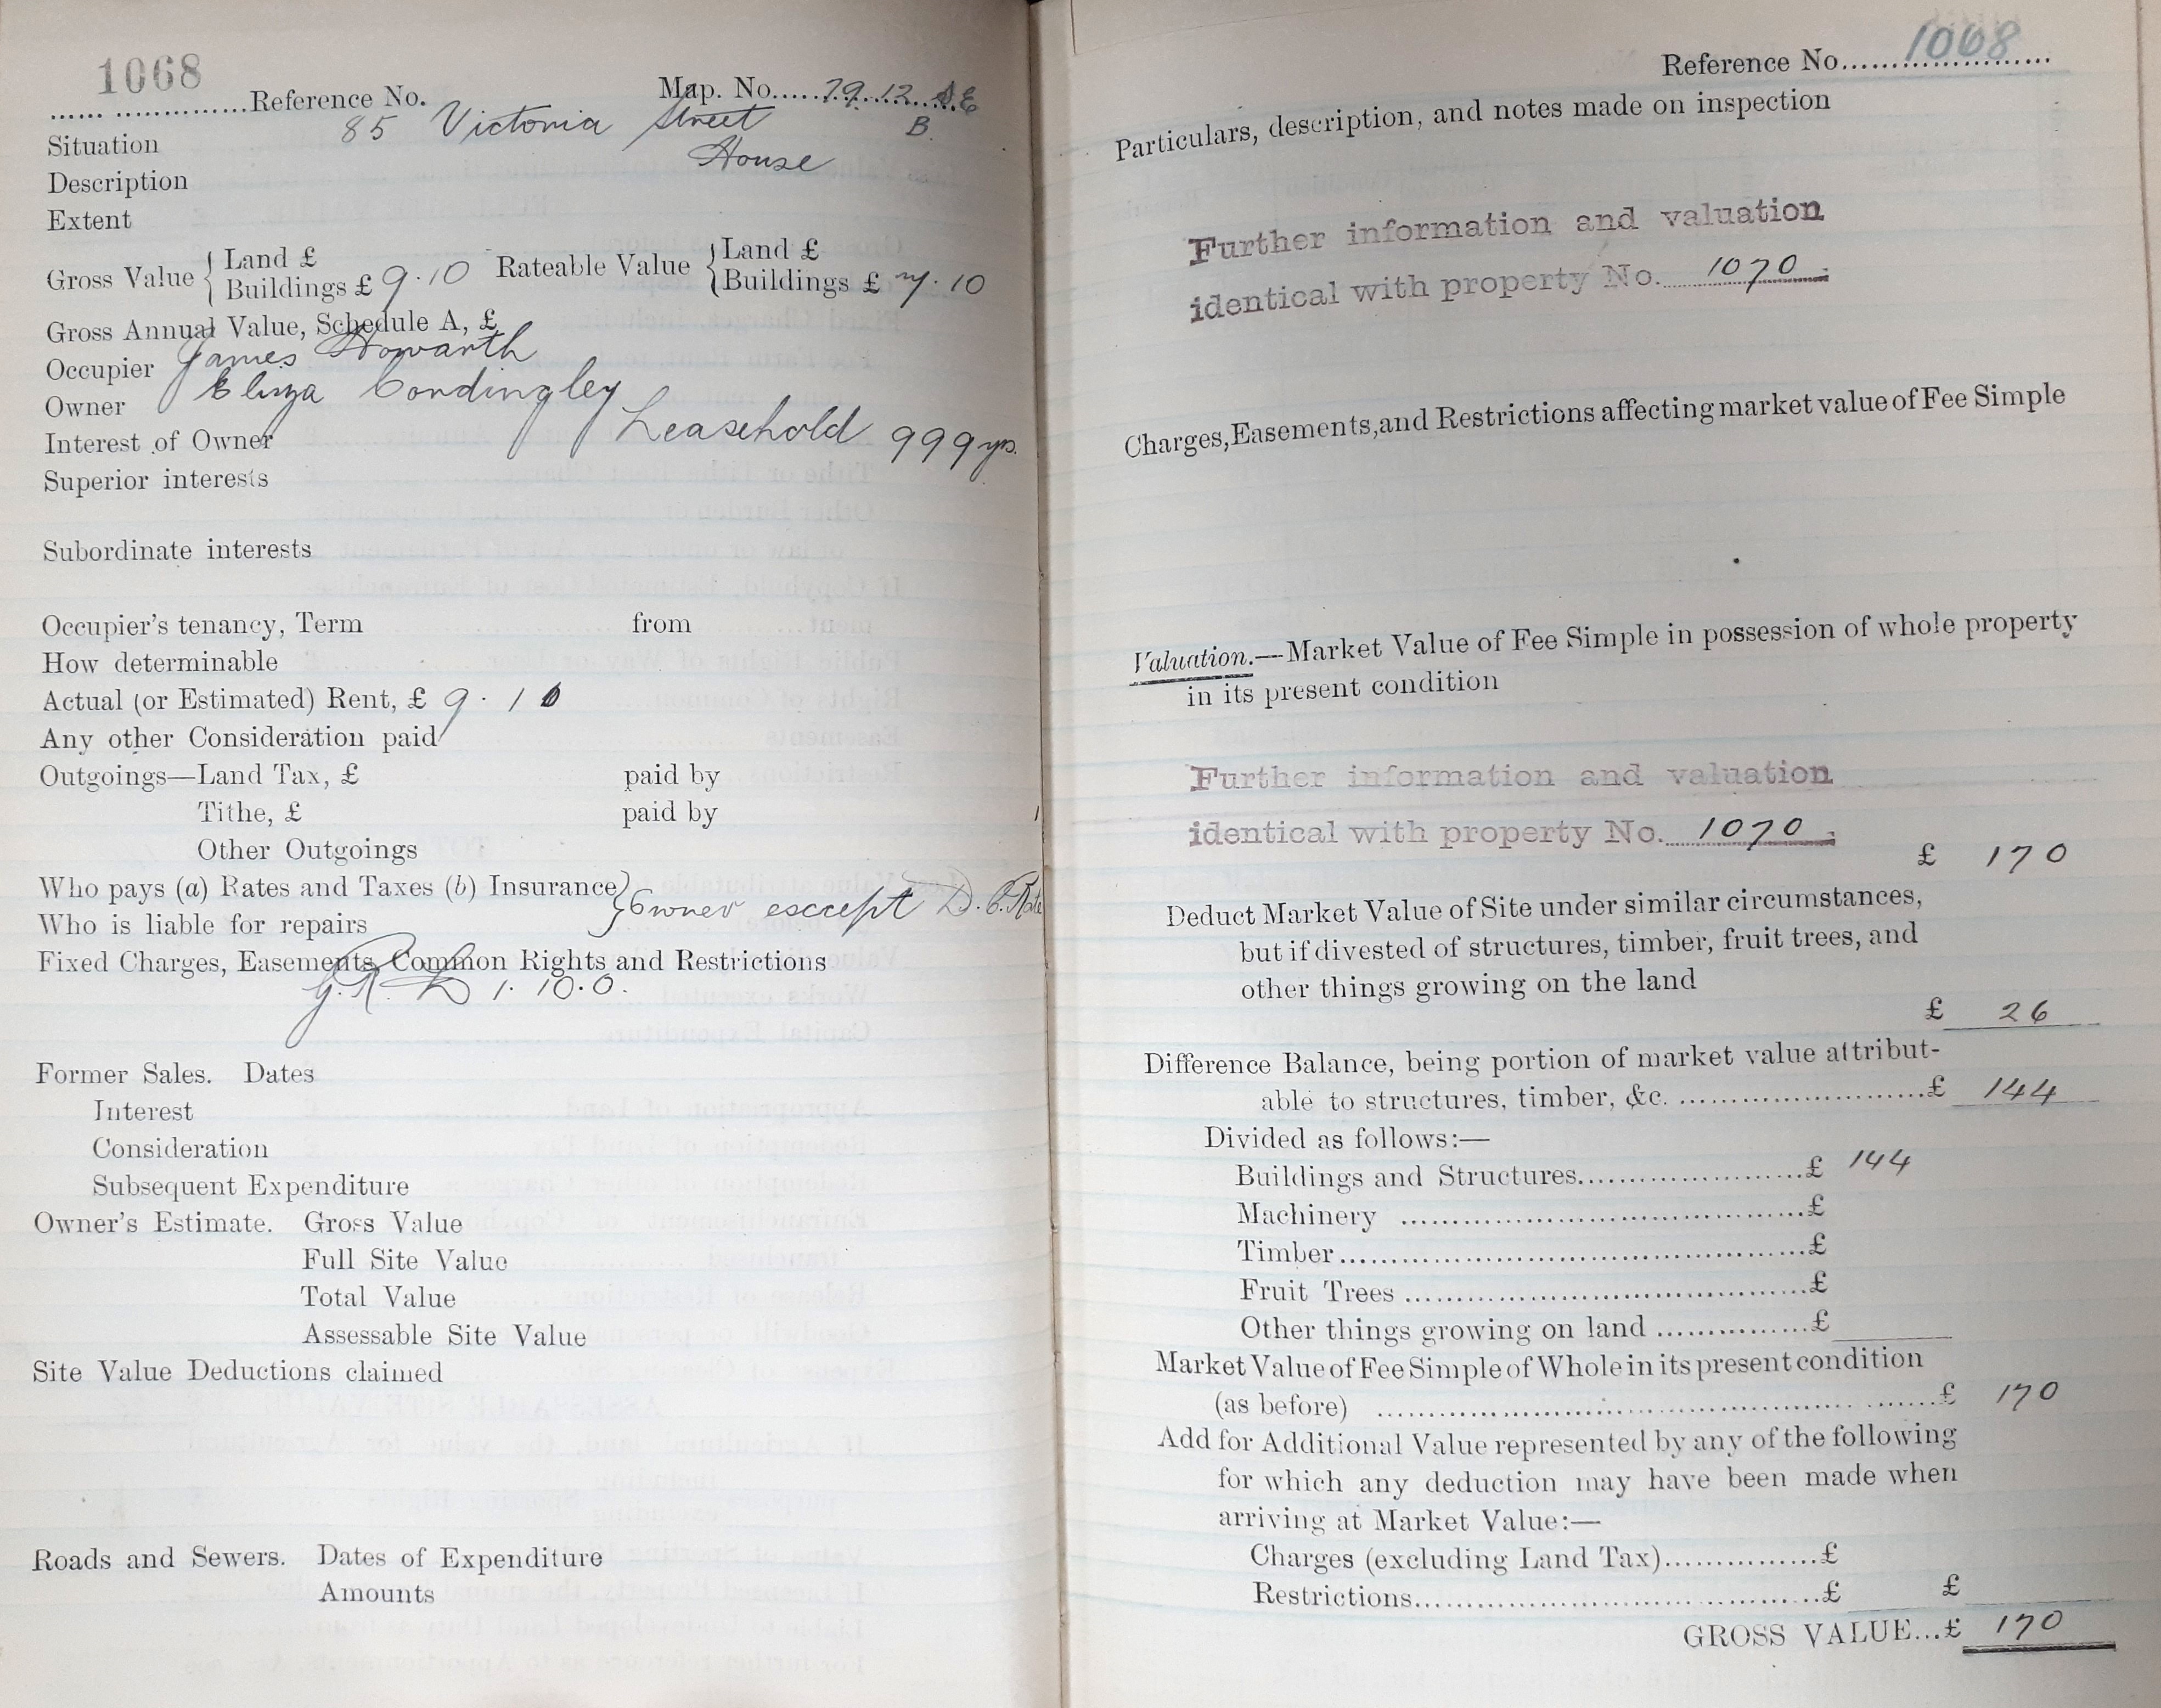 1068
Reference No. Map. No. 79.12 S.E
Situation 85 Victoria Street B.
Description House
Extent
Gross Value { Land £
Buildings £ 9.10 Rateable Value { Land £
Buildings £ 7.10
Gross Annual Value, Schedule A, £
Occupier James Howarth
Owner Eliza Cordingley
Interest of Owner Leasehold 999 yrs.
Superior interests
Subordinate interests
Occupier's tenancy, Term from
How determinable
Actual (or Estimated) Rent, £ 9.10
Any other Consideration paid
Outgoings—Land Tax, £ paid by
Tithe, £ paid by
Other Outgoings
Who pays (a) Rates and Taxes (b) Insurance }
Who is liable for repairs } Owner except D. C. Rate
Fixed Charges, Easements, Common Rights and Restrictions
G.R. £ 1.10.0.
Former Sales. Dates
Interest
Consideration
Subsequent Expenditure
Owner's Estimate. Gross Value
Full Site Value
Total Value
Assessable Site Value
Site Value Deductions claimed
Roads and Sewers. Dates of Expenditure
Amounts
Reference No. 1068
Particulars, description, and notes made on inspection
Further information and valuation
identical with property No. 1070
Charges, Easements, and Restrictions affecting market value of Fee Simple
Valuation.—Market Value of Fee Simple in possession of whole property
in its present condition
Further information and valuation
identical with property No. 1070
£ 170
Deduct Market Value of Site under similar circumstances,
but if divested of structures, timber, fruit trees, and
other things growing on the land
£ 26
Difference Balance, being portion of market value attribut-
able to structures, timber, &c. £ 144
Divided as follows:—
Buildings and Structures £ 144
Machinery £
Timber £
Fruit Trees £
Other things growing on land £
Market Value of Fee Simple of Whole in its present condition
(as before) £ 170
Add for Additional Value represented by any of the following
for which any deduction may have been made when
arriving at Market Value:—
Charges (excluding Land Tax) £
Restrictions £ £
GROSS VALUE...£ 170